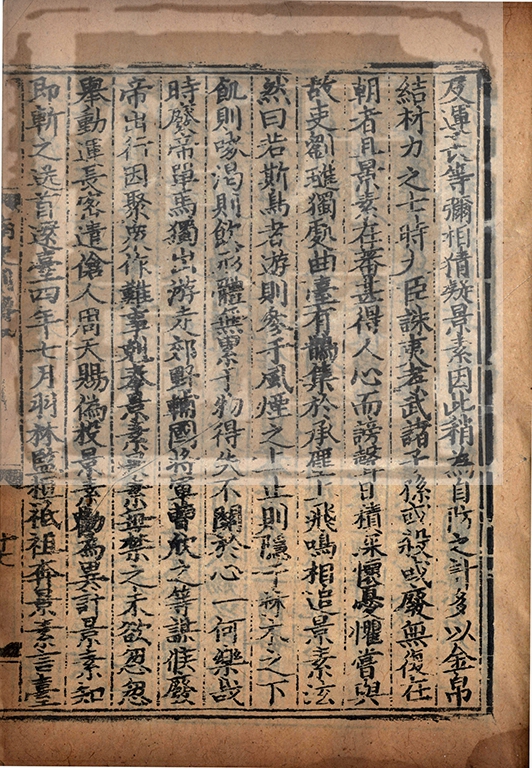 及運長等彌相猜疑景素因此稍為自防之計多以金帛
結材力之士時大臣誅夷孝武諸子孫或殺或廢無復在
朝者且景素在蕃甚得人心而謗聲日積深懷憂懼嘗與
故吏劉璡獨處曲臺有鵲集於承塵上飛鳴相追景素泫
然曰若斯鳥者遊則參于風煙之上止則隱于林木之下
飢則啄渴則飲形體無累于物得失不關於心一何樂哉
時廢帝單馬獨出游走郊野輔國將軍曹欣之等謀候廢
帝出行因聚衆作難事剋奉景素景素每禁之未欲忽忽
舉動運長密遣傖人周天賜偽投景素勸為異計景素知
即斬之送首還臺四年七月羽林監垣祗祖奔景素言臺